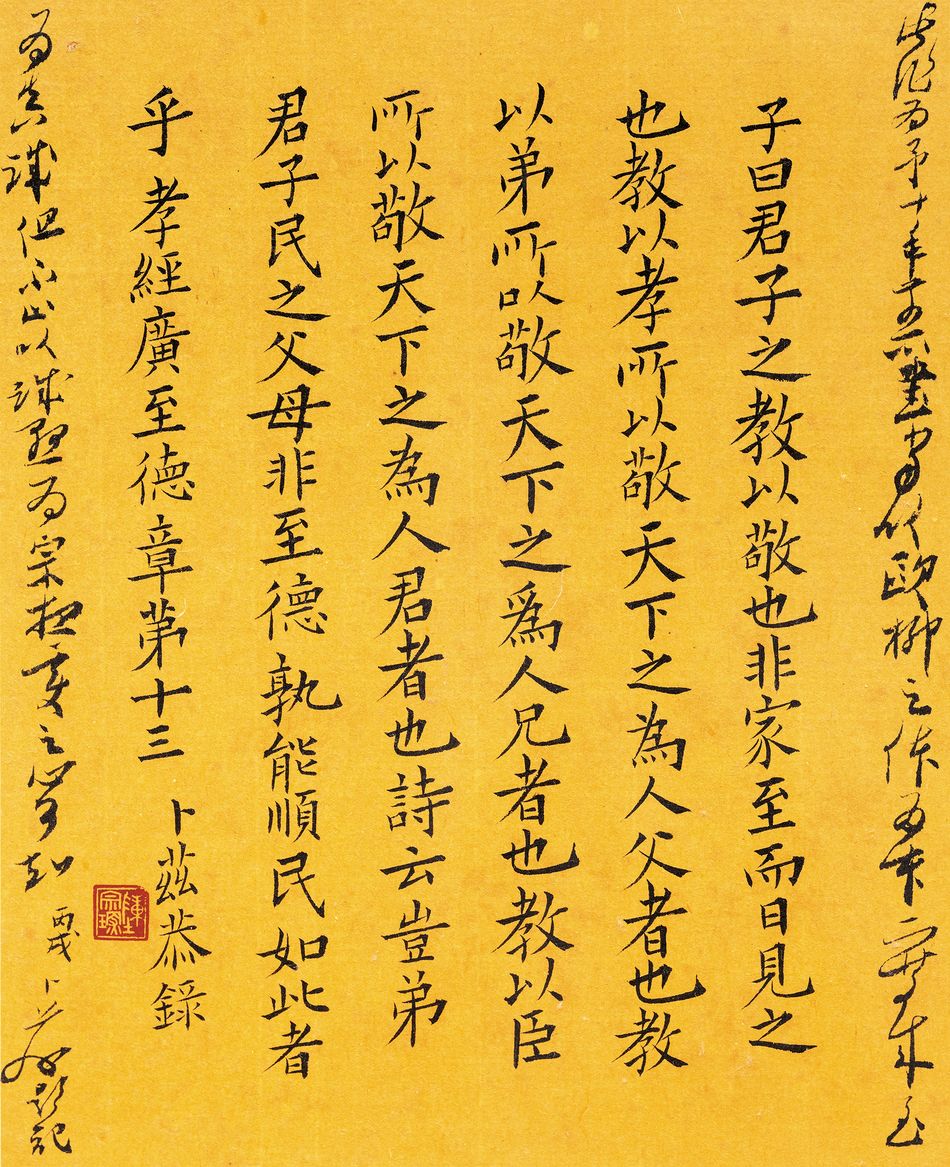 此作為予十年前 歐柳之作為
子曰君子之教以敬也非家至而日見之
也教以孝所以敬天下之為人父者也教
以弟所以敬天下之爲人兄者也教以臣
所以敬天下之為人君者也詩云豈弟
君子民之父母非至德孰能順民如此者
乎 孝經廣至德章第十三 卜茲恭錄
為 但 以 為宗 之 丙戌 題記